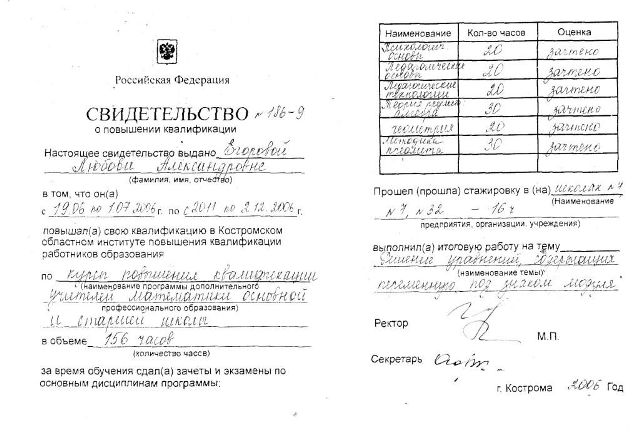 Российская Федерация
СВИДЕТЕЛЬСТВО № 186-9
о повышении квалификации
Настоящее свидетельство выдано Егоровой
Любови Александровне
(фамилия, имя, отчество)
в том, что он(а)
с 19.06 по 1.07.2006г. по с 20.11 по 2.12.2006г.
повышал(а) свою квалификацию в Костромском
областном институте повышения квалификации
работников образования
по курсы повышения квалификации
(наименование программы дополнительного
учителей математики основной
профессионального образования)
и старшей школы
в объеме 156 часов
(количество часов)
за время обучения сдал(а) зачеты и экзамены по
основным дисциплинам программы:
Наименование Кол-во часов Оценка
Психологич. основы 20 зачтено
Педагогические основы 20 зачтено
Педагогические технологии 20 зачтено
Теория 30 зачтено
геометрия 20 зачтено
Методика 30 зачтено
Прошел (прошла) стажировку в (на) школах №
(Наименование
№ 7, № 32 – 16 ч
предприятия, организации, учреждения)
выполнил(а) итоговую работу на тему
Решение уравнений, содержащих
(наименование темы)
переменную под знаком модуля
Ректор
М.П.
Секретарь
г. Кострома 2006 Год